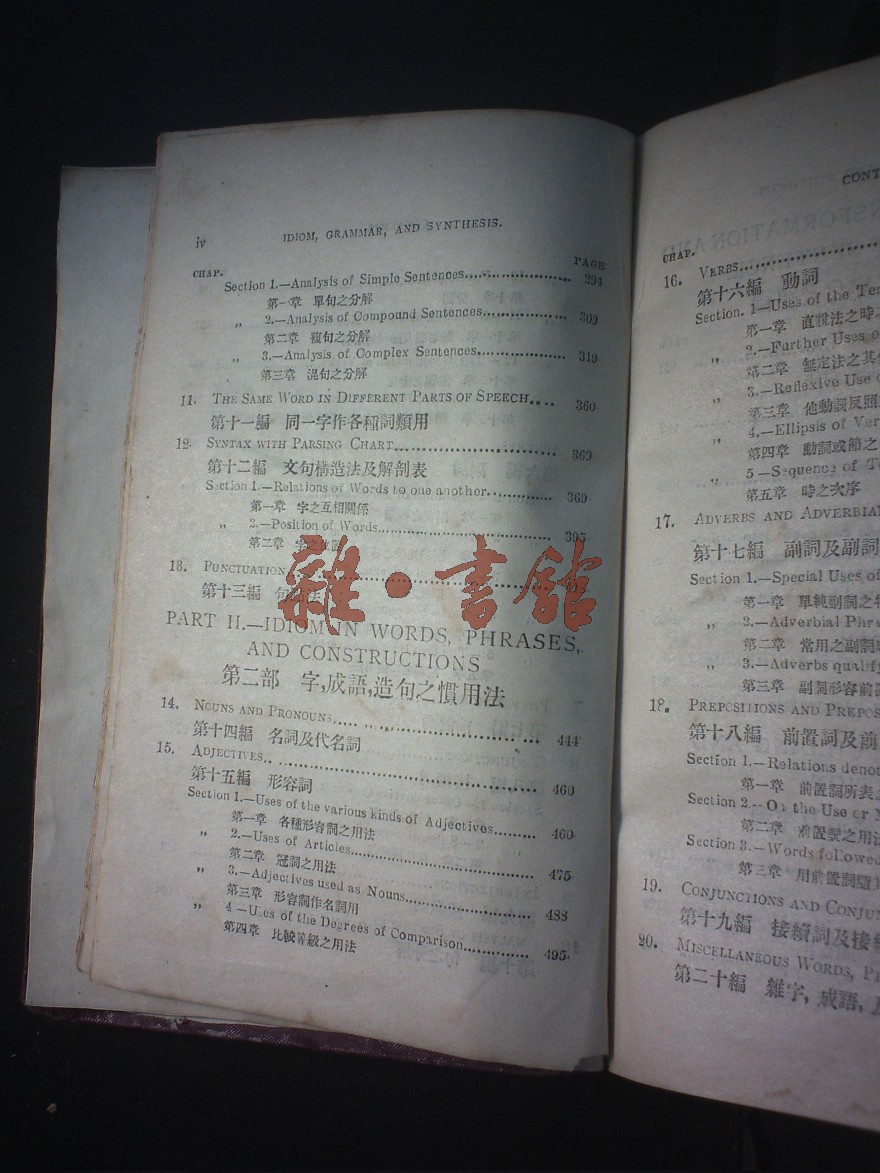 iv IDIOM, GRAMMAR, AND SYNTHESIS.
CHAP. PAGE
Section 1.—Analysis of Simple Sentences 294
第一章 單句之分解
„ 2.—Analysis of Compound Sentences 309
第二章 複句之分解
„ 3.—Analysis of Complex Sentences 319
第三章 混句之分解
11. THE SAME WORD IN DIFFERENT PARTS OF SPEECH 360
第十一編 同一字作各種詞類用
12. SYNTAX WITH PARSING CHART 369
第十二編 文句構造法及解剖表
Section 1.—Relations of Words to one another 369
第一章 字之互相關係
„ 2.—Position of Words 395
第二章 字之位置
13. PUNCTUATION
第十三編 句 法
雜·書館
PART II.—IDIOM IN WORDS, PHRASES,
AND CONSTRUCTIONS
第二部 字,成語,造句之慣用法
14. NOUNS AND PRONOUNS 444
第十四編 名詞及代名詞
15. ADJECTIVES 460
第十五編 形容詞
Section 1.—Uses of the various kinds of Adjectives 460
第一章 各種形容詞之用法
„ 2.—Uses of Articles 475
第二章 冠詞之用法
„ 3.—Adjectives used as Nouns 488
第三章 形容詞作名詞用
„ 4—Uses of the Degrees of Comparison 495
第四章 比較等級之用法
CONT
CHAP.
16. VERBS
第十六編 動詞
Section. 1—Uses of the Ten
第一章 直說法之時
„ 2.—Further Uses o
第二章 無定法之其
„ 3.—Reflexive Use
第三章 他動詞反照
„ 4.—Ellipsis of Ver
第四章 動詞或節之
„ 5—Sequence of Te
第五章 時之次序
17. ADVERBS AND ADVERBIAL
第十七編 副詞及副詞
Section 1.—Special Uses of
第一章 單純副詞之
„ 2.—Adverbial Phr
第二章 常用之副詞
„ 3.—Adverbs qualify
第三章 副詞形容前
18. PREPOSITIONS AND PREPOS
第十八編 前置詞及前
Section 1.—Relations denot
第一章 前置詞所表
Section 2.—On the Use or
第二章 前置詞之用法
Section 3.—Words followed
第三章 用前置詞
19. CONJUNCTIONS AND CONJUN
第十九編 接續詞及接
20. MISCELLANEOUS WORDS, P
第二十編 雜字,成語,